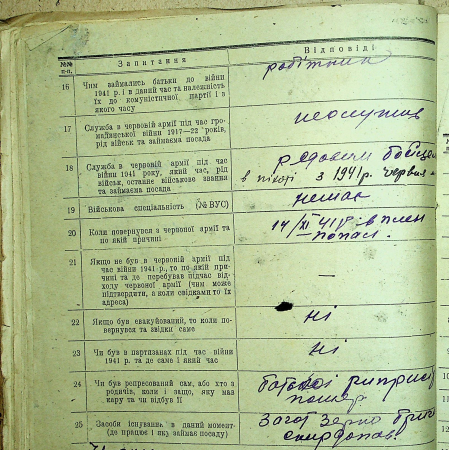 №№ п-п.
Запитання
Відповіді
робітники
16 Чим займались батьки до війни
1941 р. і в даний час та належність
їх до комуністичної партії і з
якого часу
17 Служба в червоній армії під час гро-
мадянської війни 1917—22 років,
рід військ та займаєма посада
неслужив
18 Служба в червоній армії під час
війни 1941 року, який час, рід
військ, останнє військове звання
та займаєма посада
рядовим бойцем
в пікоті з 1941 р. червня
19 Військова спеціяльність (№ ВУС)
немає
20 Коли повернувся з червоної армії та
по якій причині
14/XI 41 р. в плен
попал.
21 Якщо не був в червоній армії під
час війни 1941 р., то по якій при-
чині та де перебував підчас від-
ходу червоної армії (чим може
підтвердити, а коли свідками то їх
адреса)
—
22 Якщо був евакуйований, то коли по-
вернувся та звідки саме
ні
23 Чи був в партизанах під час війни
1941 р. та де саме і який час
ні
24 Чи був репресований сам, або хто з
родичів, коли і защо, яку мав
кару та чи відбув її
помер
25 Засоби існування в даний момент
(де працює і яку займає посаду)
Загот Зерно